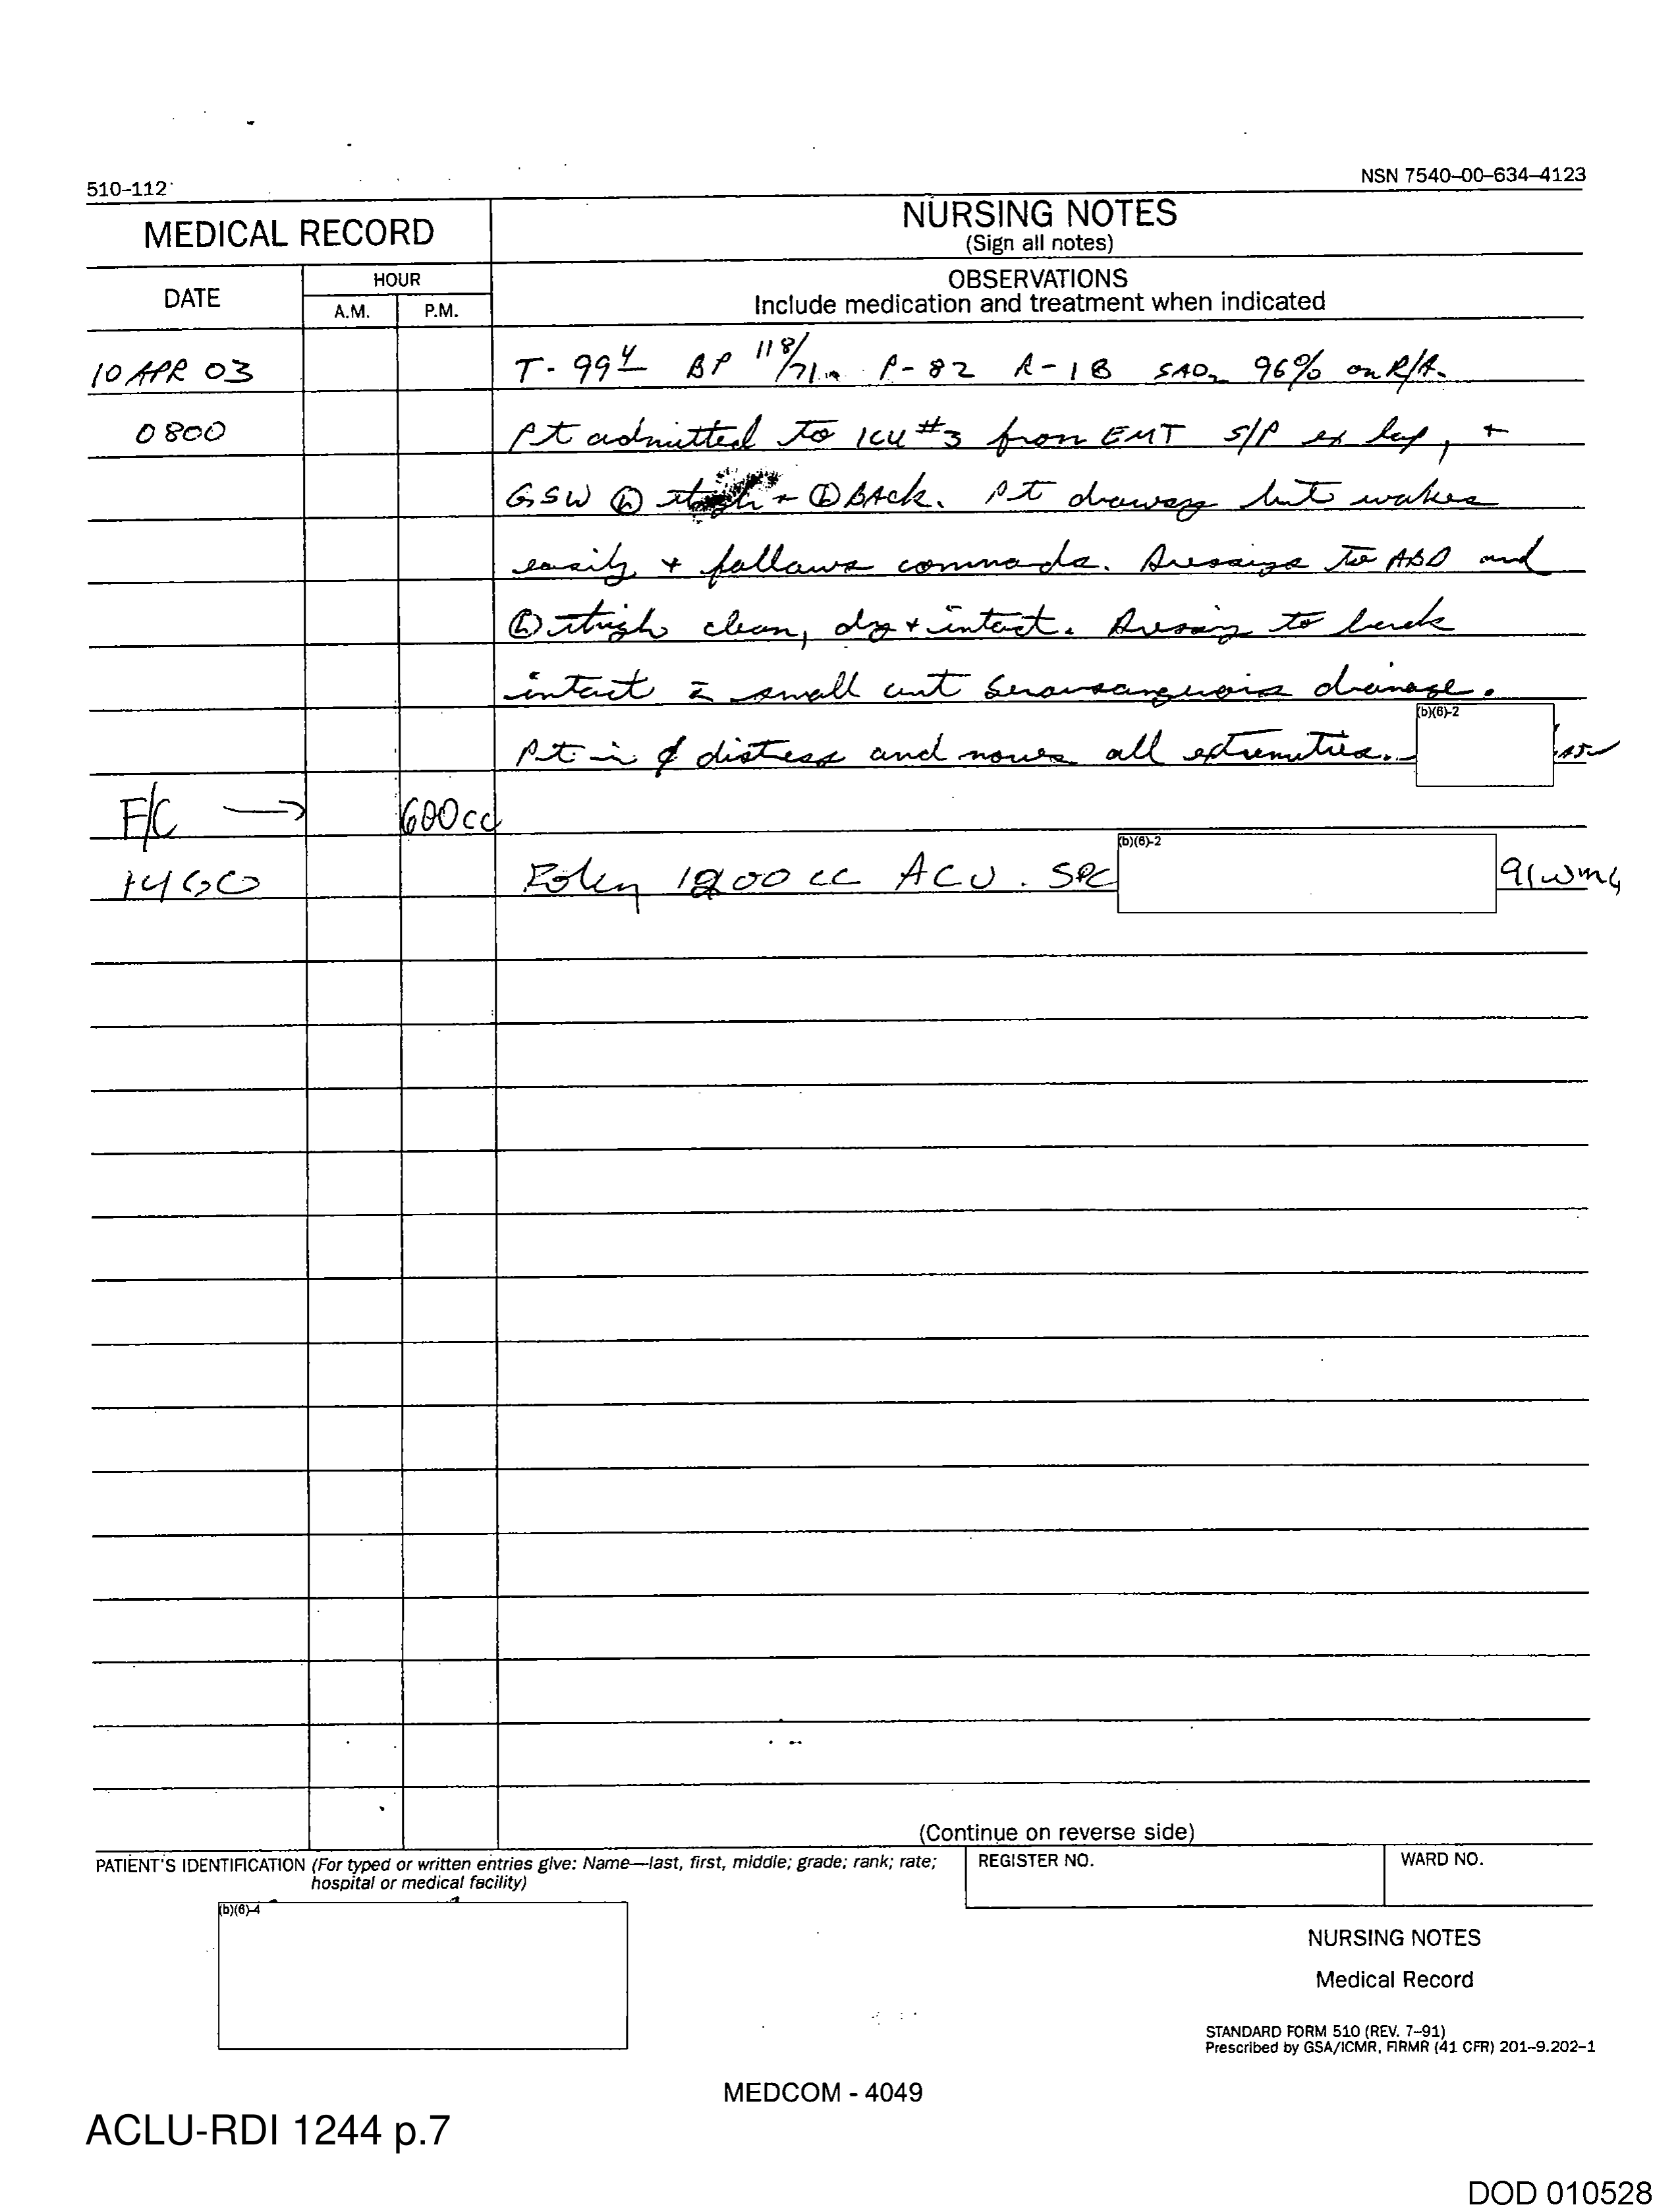 510-112
NSN 7540-00-634-4123
MEDICAL RECORD
NURSING NOTES
(Sign all notes)
DATE
HOUR
A.M.
P.M.
OBSERVATIONS
Include medication and treatment when indicated
10 APR 03 T- 99⁴ BP 118/71 P-82 R-18 SAO₂ 96% on R/A.
0800 Pt admitted to ICU #3 from EMT S/P ex lap, +
GSW Ⓛ thigh + Ⓛ BACK. Pt drowsy but wakes
easily + follows commads. Dressings to ABD and
Ⓛ thigh clean, dry + intact. Dressing to back
intact c̄ small amt serousanguois drainage.
Pt in ∅ distress and moves all extremities.
(b)(6)-2
F/C → 600cc
1400 Foley 1200 cc ACU. SPC
(b)(6)-2
(Continue on reverse side)
PATIENT'S IDENTIFICATION (For typed or written entries give: Name—last, first, middle; grade; rank; rate;
hospital or medical facility)
REGISTER NO.
WARD NO.
(b)(6)-4
NURSING NOTES
Medical Record
STANDARD FORM 510 (REV. 7-91)
Prescribed by GSA/ICMR, FIRMR (41 CFR) 201-9.202-1
MEDCOM - 4049
ACLU-RDI 1244 p.7
DOD 010528